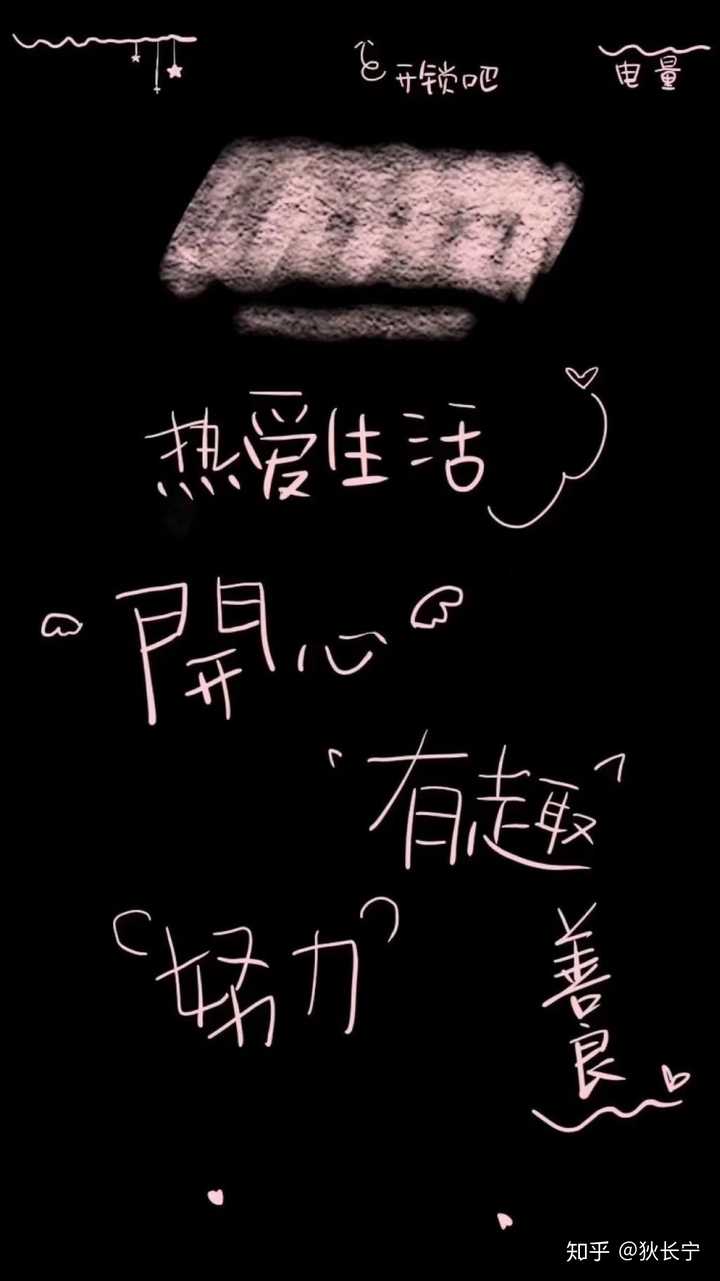 开锁吧
电量
热爱生活
開心
有趣
努力
善良
知乎 @狄长宁